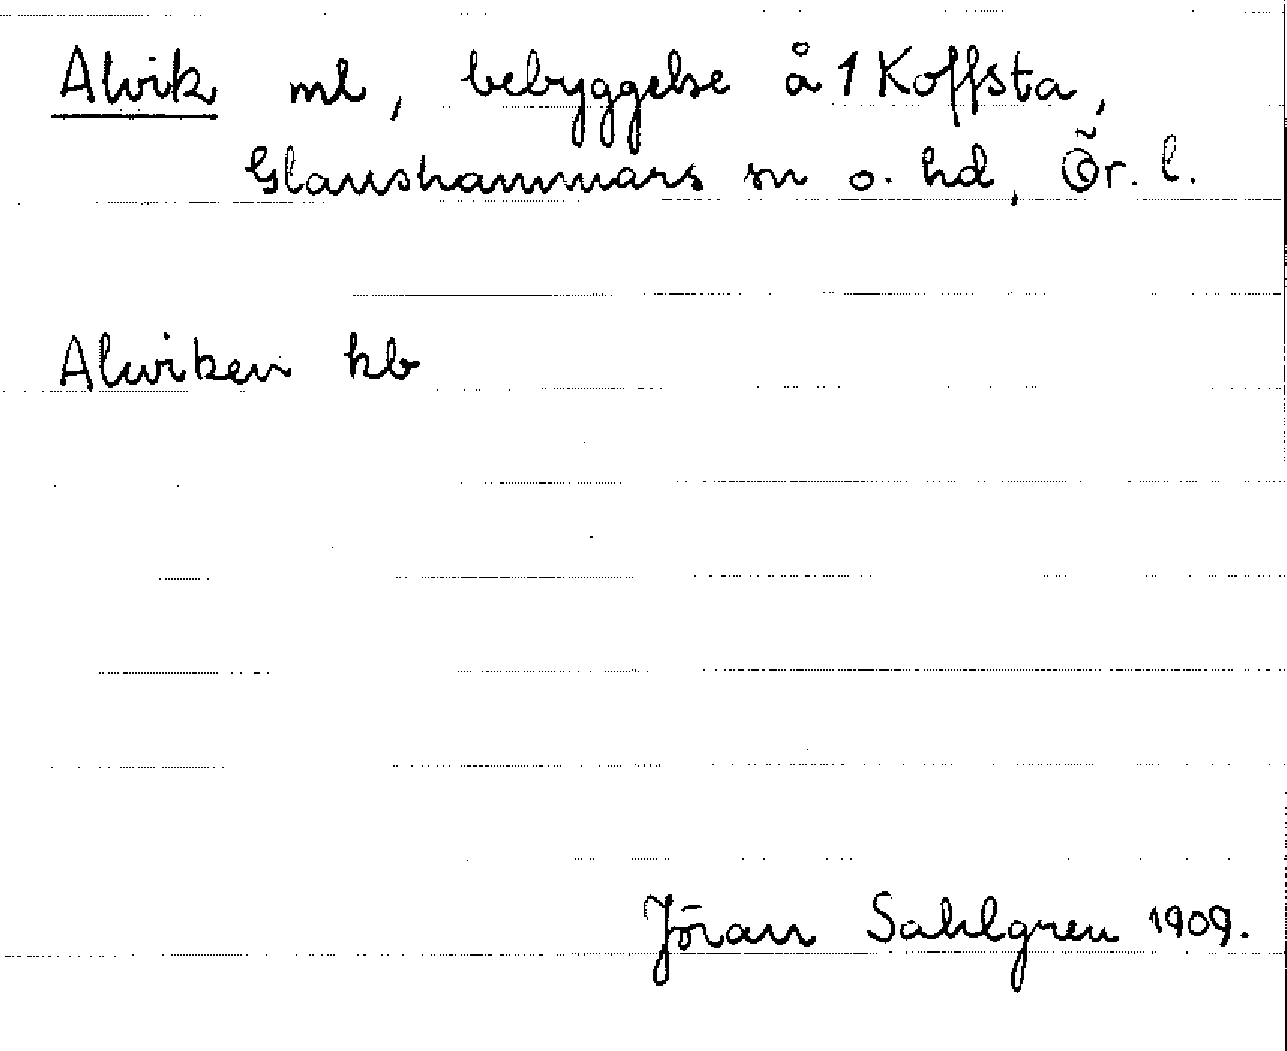 Alvik ml, bebyggelse å 1 Koffsta,
Glanshammars sn o. hd, Ör. l.
Alviken kb
Jöran Sahlgren 1909.